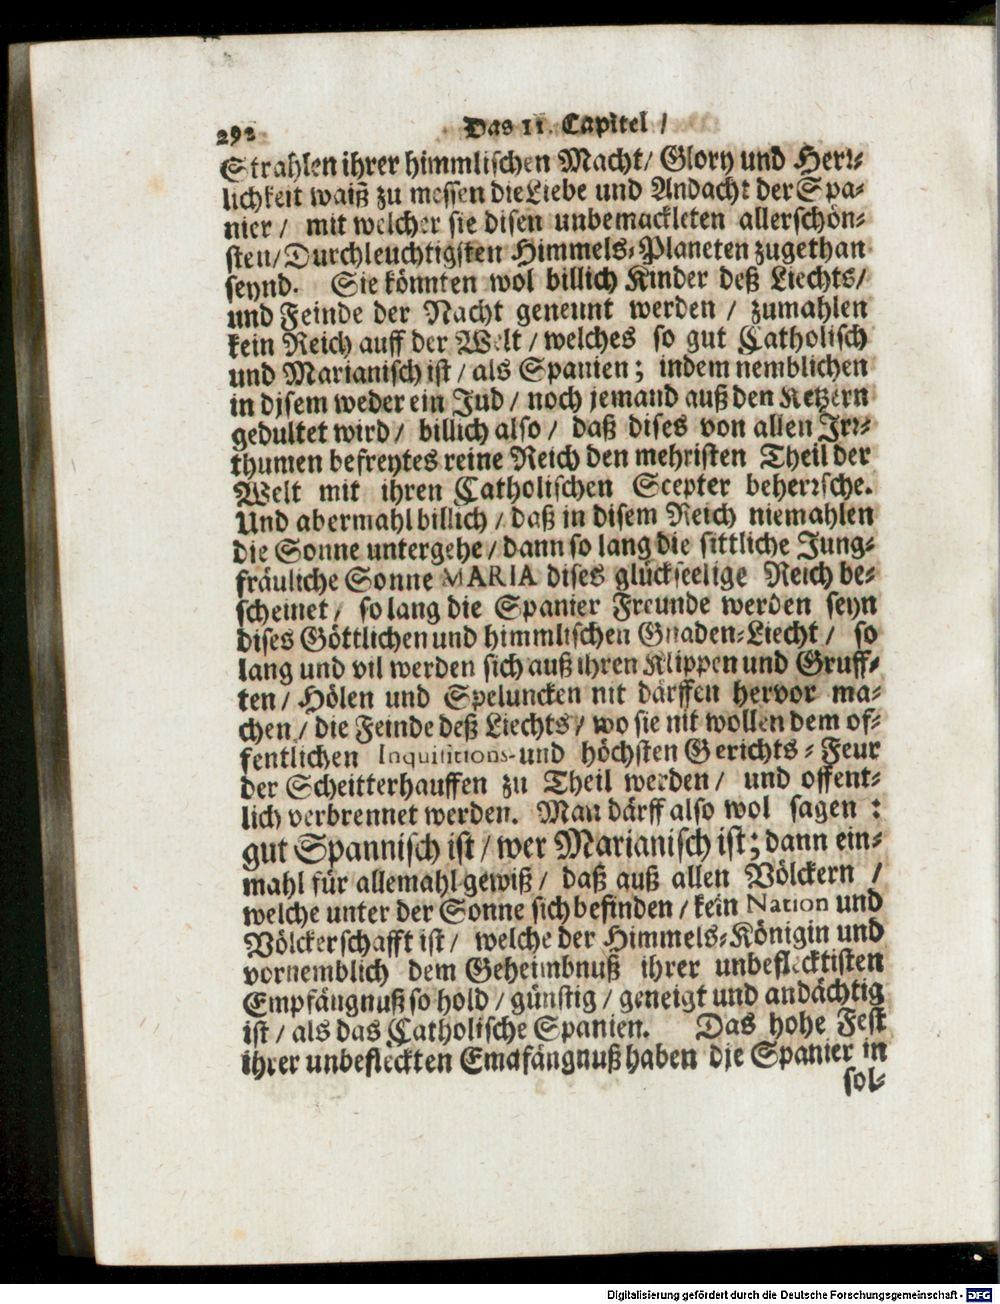 292 Das 11. Capitel /
Strahlen ihrer himmlischen Macht/ Glory und Herr-
lichkeit waiß zu messen die Liebe und Andacht der Spa-
nier / mit welcher sie disen unbemackleten allerschön-
sten/ Durchleuchtigsten Himmels-Planeten zugethan
seynd. Sie könnten wol billich Kinder deß Liechts/
und Feinde der Nacht genennt werden / zumahlen
kein Reich auff der Welt / welches so gut Catholisch
und Marianisch ist / als Spanien; indem nemblichen
in disem weder ein Jud / noch jemand auß den Ketzern
gedultet wird / billich also / daß dises von allen Irr-
thumen befreytes reine Reich den mehristen Theil der
Welt mit ihren Catholischen Scepter beherrsche.
Und abermahl billich / daß in disem Reich niemahlen
die Sonne untergehe / dann so lang die sittliche Jung-
fräuliche Sonne MARIA dises glückseelige Reich be-
scheinet / so lang die Spanier Freunde werden seyn
dises Göttlichen und himmlischen Gnaden-Liecht / so
lang und vil werden sich auß ihren Klippen und Gruff-
ten / Hölen und Speluncken nit därffen hervor ma-
chen / die Feinde deß Liechts / wo sie nit wollen dem of-
fentlichen Inquisitions-und höchsten Gerichts-Feur
der Scheitterhauffen zu Theil werden / und offent-
lich verbrennet werden. Man därff also wol sagen :
gut Spannisch ist / wer Marianisch ist; dann ein-
mahl für allemahl gewiß / daß auß allen Völckern /
welche unter der Sonne sich befinden / kein Nation und
Völckerschafft ist / welche der Himmels-Königin und
vornemblich dem Geheimbnuß ihrer unbeflecktisten
Empfängnuß so hold / günstig / geneigt und andächtig
ist / als das Catholische Spanien. Das hohe Fest
ihrer unbefleckten Emdfängnuß haben die Spanier in
sol-
Digitalisierung gefördert durch die Deutsche Forschungsgemeinschaft - DFG